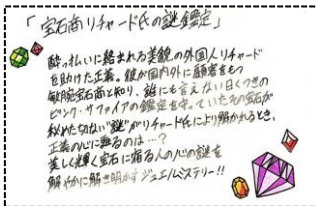 「宝石商リチャード氏の謎鑑定」
酔っ払いに絡まれる美貌の外国人リチャード
を助けた正義。彼が国内外に顧客をもつ
敏腕宝石商と知り、誰にも言えない曰くつきの
ピンク・サファイアの鑑定を守っていたその宝石が
秘めた切ない“謎”がリチャード氏により解かれるとき、
正義の心に甦るのは…?
美しく輝く宝石に宿る人の心の謎を
鮮やかに解き明かすジュエルミステリー!!